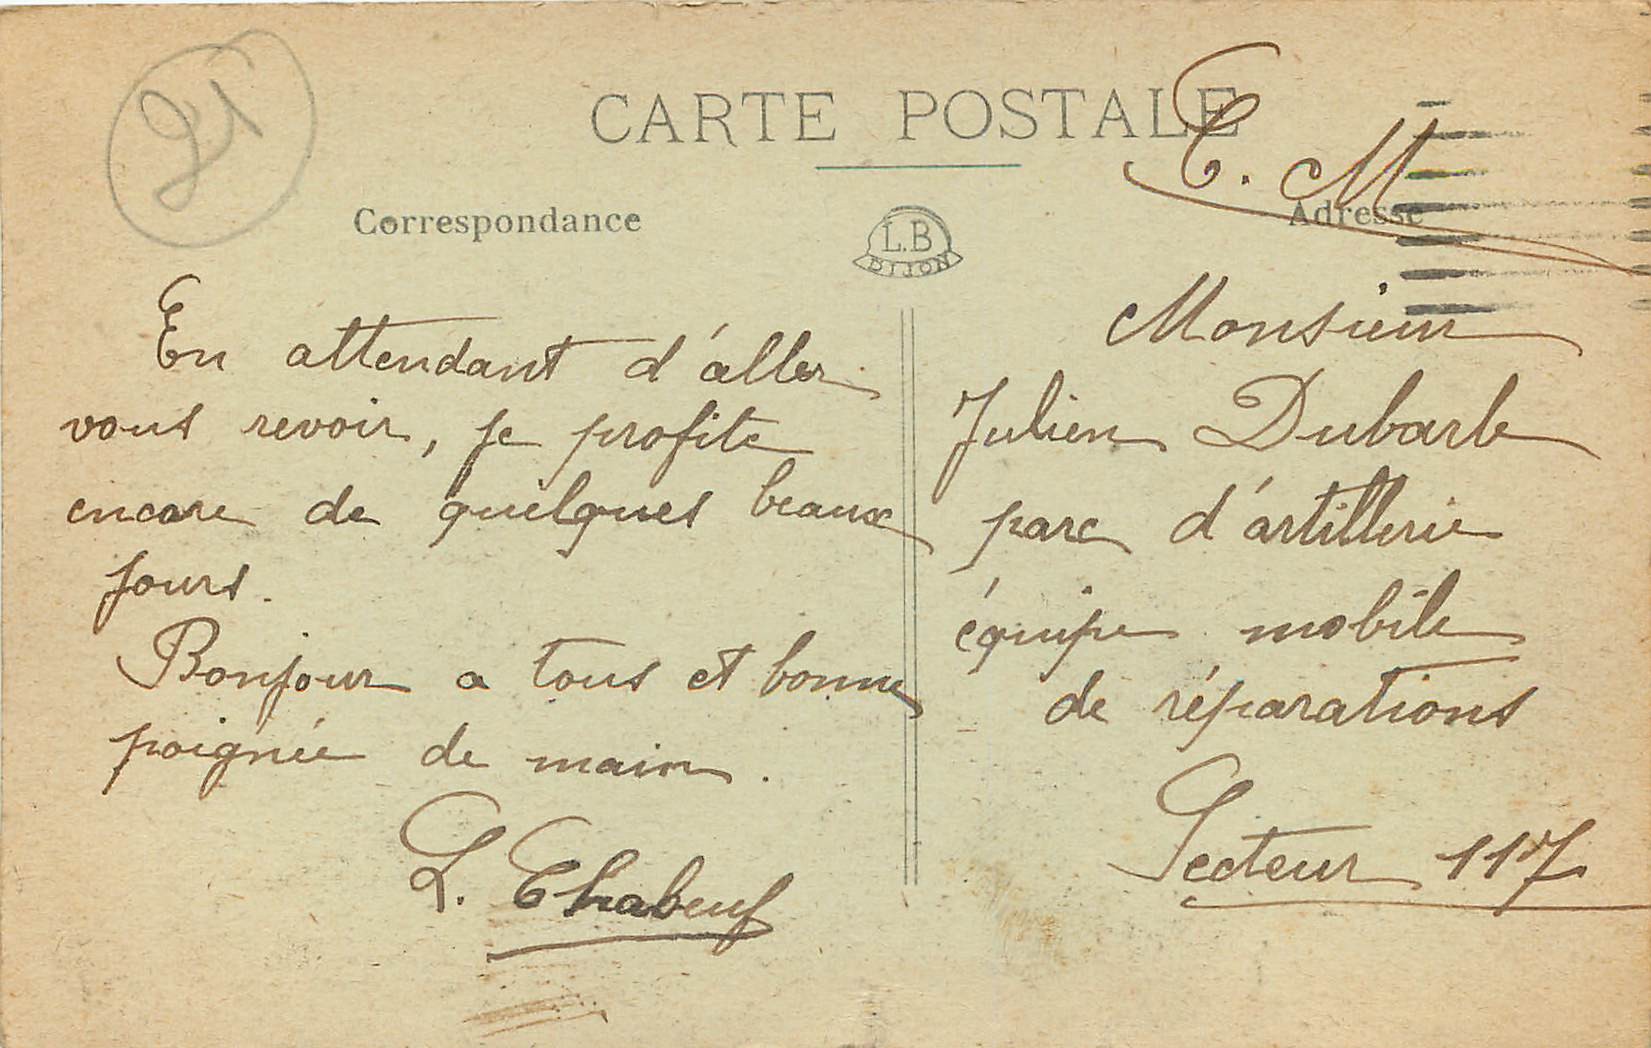 21
CARTE POSTALE
C. M
Correspondance
L.B
DIJON
Adresse
En attendant d'aller
vous revoir, je profite
encore de quelques beaux
jours.
Bonjour a tous et bonne
poignée de main.
L. Chabeuf
Monsieur
Julien Dubarle
parc d'artillerie
équipe mobile
de réparations
Secteur 117